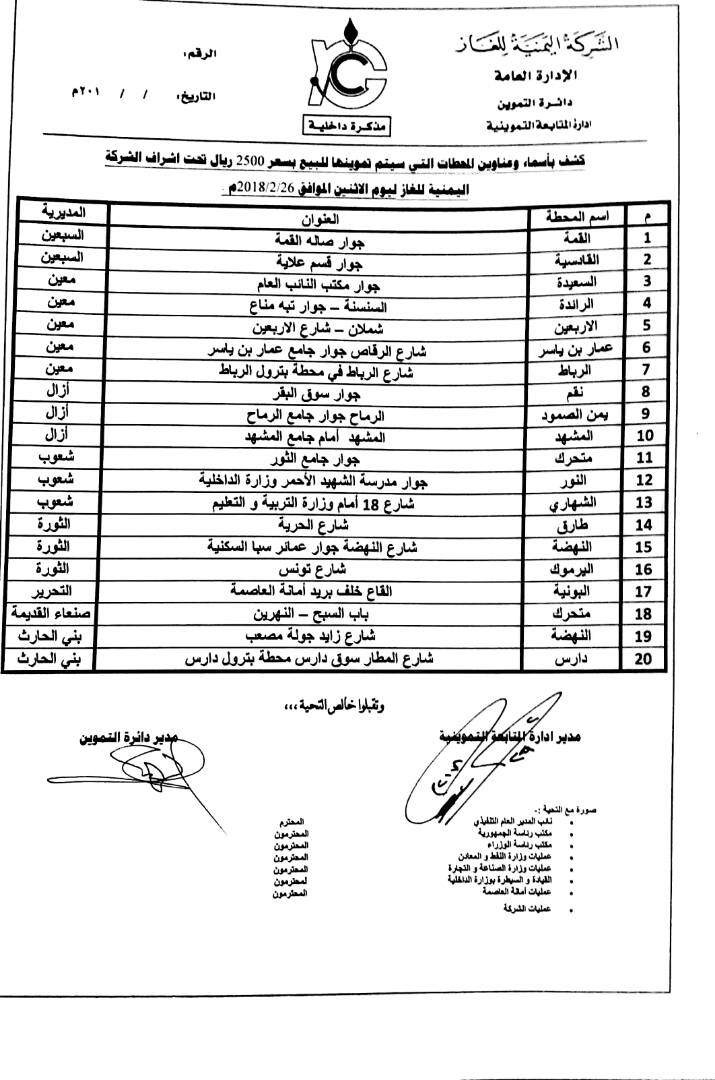 الشركة اليمنية للغاز
الإدارة العامة
دائرة التموين
ادارة المتابعة التموينية
الرقم:
التاريخ: / / ٢٠١م
مذكرة داخلية
كشف بأسماء وعناوين المحطات التي سيتم تموينها للبيع بسعر 2500 ريال تحت اشراف الشركة
اليمنية للغاز ليوم الاثنين الموافق 2018/2/26م .
م اسم المحطة العنوان المديرية
1 القمة جوار صاله القمة السبعين
2 القادسية جوار قسم علاية السبعين
3 السعيدة جوار مكتب النائب العام معين
4 الرائدة السنسنة – جوار تبه مناع معين
5 الاربعين شملان – شارع الاربعين معين
6 عمار بن ياسر شارع الرقاص جوار جامع عمار بن ياسر معين
7 الرباط شارع الرباط في محطة بترول الرباط معين
8 نقم جوار سوق البقر أزال
9 يمن الصمود الرماح جوار جامع الرماح أزال
10 المشهد المشهد أمام جامع المشهد أزال
11 متحرك جوار جامع الثور شعوب
12 النور جوار مدرسة الشهيد الأحمر وزارة الداخلية شعوب
13 الشهاري شارع 18 أمام وزارة التربية و التعليم شعوب
14 طارق شارع الحرية الثورة
15 النهضة شارع النهضة جوار عمائر سبا السكنية الثورة
16 اليرموك شارع تونس الثورة
17 البونية القاع خلف بريد أمانة العاصمة التحرير
18 متحرك باب السبح – النهرين صنعاء القديمة
19 النهضة شارع زايد جولة مصعب بني الحارث
20 دارس شارع المطار سوق دارس محطة بترول دارس بني الحارث
وتقبلوا خالص التحية ،،،
مدير ادارة المتابعة التموينية
مدير دائرة التموين
صورة مع التحية :-
• نائب المدير العام التنفيذي المحترم
• مكتب رئاسة الجمهورية المحترمون
• مكتب رئاسة الوزراء المحترمون
• عمليات وزارة النفط و المعادن المحترمون
• عمليات وزارة الصناعة و التجارة المحترمون
• القيادة و السيطرة بوزارة الداخلية لمحترمون
• عمليات أمانة العاصمة المحترمون
• عمليات الشركة